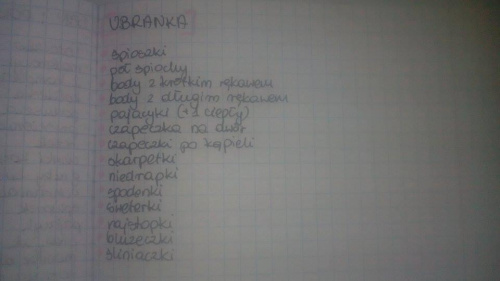 UBRANKA
śpioszki
pół śpiochy
body z krótkim rękawem
body z długim rękawem
pajacyki (+1 ciepły)
czapeczka na dwór
czapeczki po kąpieli
skarpetki
niedrapki
spodenki
sweterki
rajstopki
bluzeczki
śliniaczki